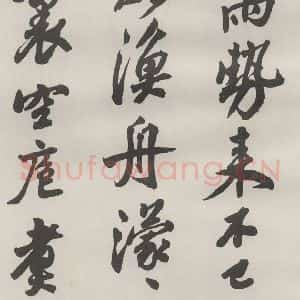 雨勢来不已
漁舟濛〻
裏空庖煮
Shufawang.CN